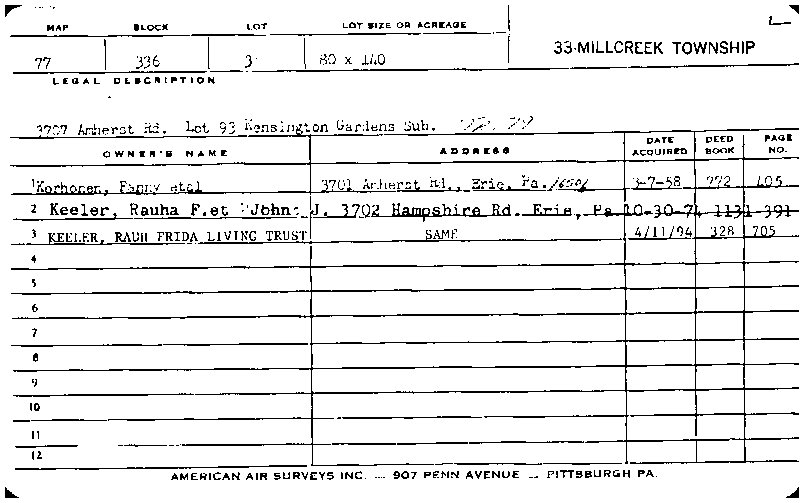 MAP BLOCK LOT LOT SIZE OR ACREAGE
33-MILLCREEK TOWNSHIP
77 336 3 80 x 140
LEGAL DESCRIPTION
3707 Amherst Rd. Lot 93 Kensington Gardens Sub.
OWNER'S NAME ADDRESS DATE ACQUIRED DEED BOOK PAGE NO.
1 Korhonen, Fanny etal 3701 Amherst Rd., Erie, Pa. 16506 3-7-58 772 405
2 Keeler, Rauha F.et John J. 3702 Hampshire Rd. Erie, Pa 10-30-74 1131-391
3 KEELER, RAUH FRIDA LIVING TRUST SAME 4/11/94 328 705
4
5
6
7
8
9
10
11
12
AMERICAN AIR SURVEYS INC. — 907 PENN AVENUE — PITTSBURGH PA.